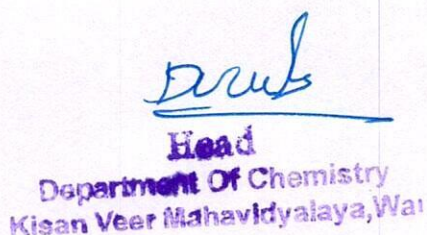 Head
Department Of Chemistry
Kisan Veer Mahavidyalaya, Wai